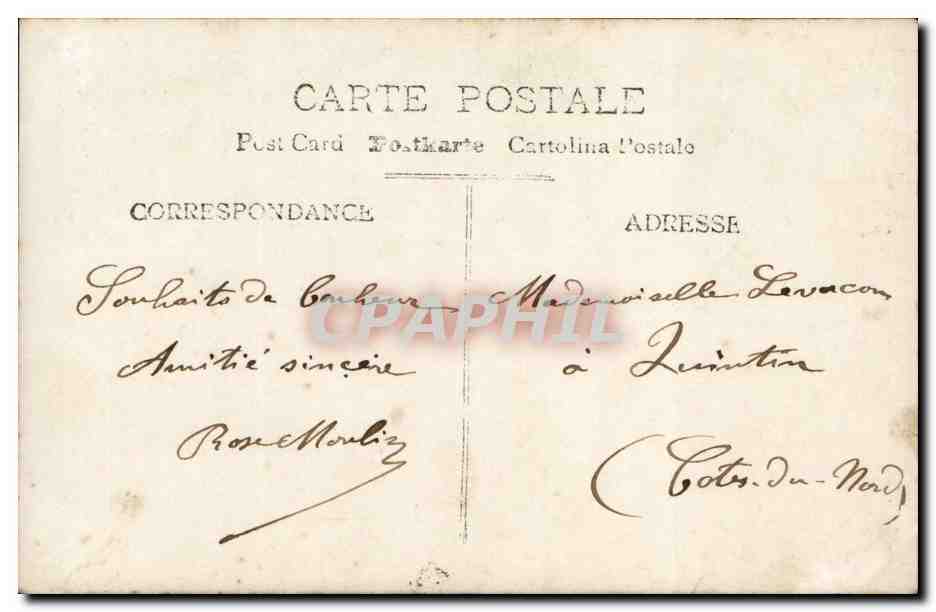 CARTE POSTALE
Post Card Postkarte Cartolina Postale
CORRESPONDANCE
Souhaits de bonheur
Amitié sincère
Rose Moulin
ADRESSE
Mademoiselle Levacon
à Quintin
(Côtes-du-Nord)
CPAPHIL